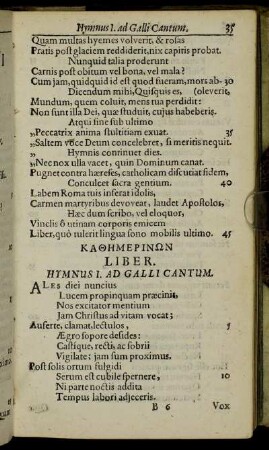 Hymnus I. ad Galli Cantum. 35
Quam multas hyemes volverit, & rosas
Pratis post glaciem reddiderit, nix capitis probat.
Nunquid talia proderunt
Carnis post obitum vel bona, vel mala?
Cum jam, quidquid id est quod fueram, mors ab- 30
Dicendum mihi, Quisquis es, (oleverit,
Mundum, quem coluit, mens tua perdidit:
Non sunt illa Dei, quæ studuit, cujus habeberis.
Atqui fine sub ultimo
„Peccatrix anima stultitiam exuat. 35
„Saltem voce Deum concelebret, si meritis nequit.
„ Hymnis continuet dies.
„Nec nox ulla vacet, quin Dominum canat.
Pugnet contra hæreses, catholicam discutiat fidem,
Conculcet sacra gentium. 40
Labem Roma tuis inferat idolis,
Carmen martyribus devoveat, laudet Apostolos,
Hæc dum scribo, vel eloquor,
Vinclis ô utinam corporis emicem
Liber, quò tulerit lingua sono mobilis ultimo. 45
ΚΑΘΗΜΕΡΙΝΩΝ
LIBER.
HYMNUS I. AD GALLI CANTUM.
ALES diei nuncius
Lucem propinquam præcinit,
Nos excitator mentium
Jam Christus ad vitam vocat;
Auferte, clamat, lectulos, 5
Ægro sopore desides:
Castique, recti, ac sobrii
Vigilate: jam sum proximus.
Post solis ortum fulgidi
Serum est cubile spernere, 10
Ni parte noctis addita
Tempus labori adjeceris.
B 6 Vox